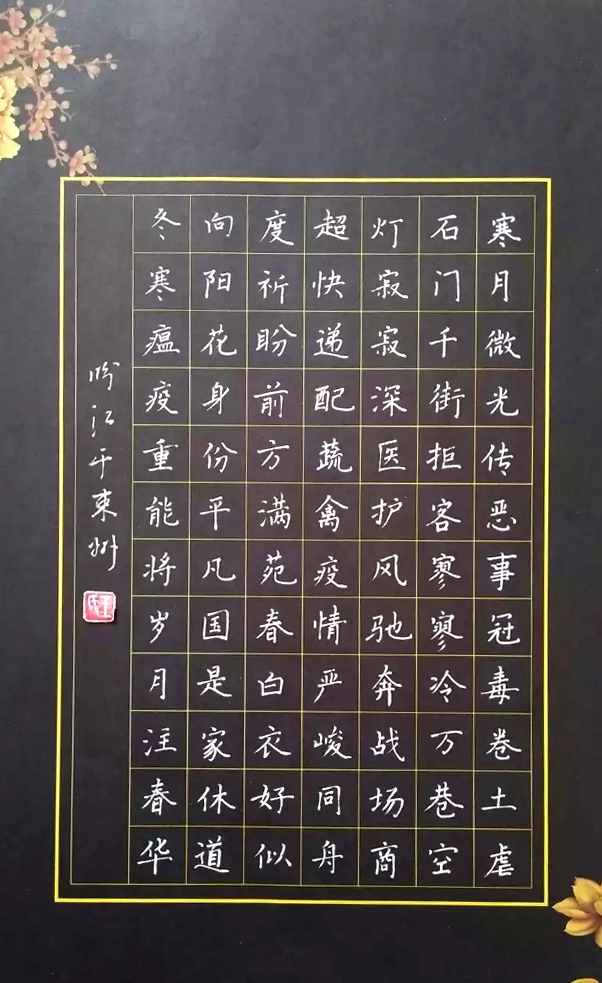 寒月微光传恶事冠毒卷土虐
石门千街拒客寥寥冷万巷空
灯寂寂深医护风驰奔战场商
超快递配蔬禽疫情严峻同舟
度祈盼前方满苑春白衣好似
向阳花身份平凡国是家休道
冬寒瘟疫重能将岁月汪春华